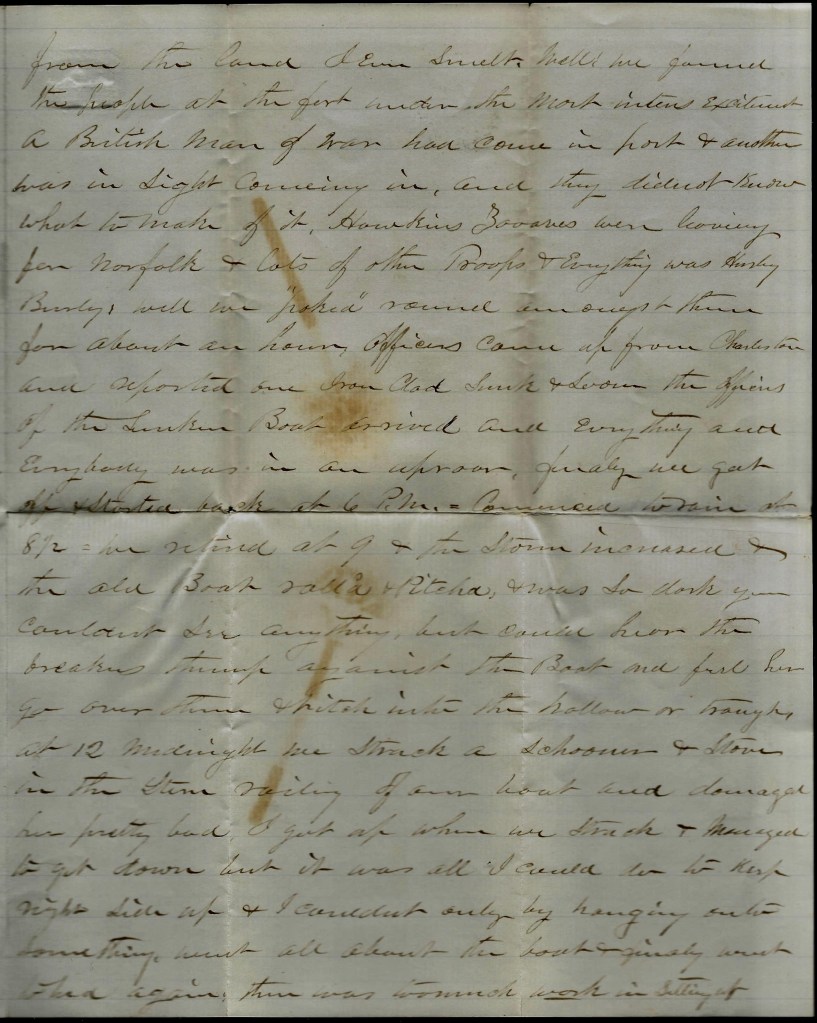 from the land I ever Smelt. Well! we found
the people at the fort under the most intens Exitment
A British Man of War had come in port & another
was in Sight Comeing in, and they did not Know
what to make of it, Hawkins Zouaves were leaving
for Norfolk & lots of other Troops & Evrything was Hurly
Burly; well we "poked" round amongst them
for about an hour, Officers came up from Charleston
and reported one Iron Clad Sunk & Soon the officers
of the Sunken Boat arrived and Evrything and
Evrybody was in an uproar, finaly we got
off & Started back at 6 P.M. = Comenced to rain at
8½ = we retired at 9 & the Storm increased &
the old Boat roll'd & Pitchd, & was So dark you
couldnt See anything, but could hear the
breakers thump against the Boat and feel her
go over them & pitch into the hollow or trough,
at 12 Midnight we Struck a Schooner & Stove
in the Stern railing of our boat and damaged
her pretty bad, I got up when we Struck & Managed
to get down but it was all I could do to Keep
right Side up & I couldnt only by hanging onto
Something, went all about the boat & finaly went
to bed again, there was work in Setting up